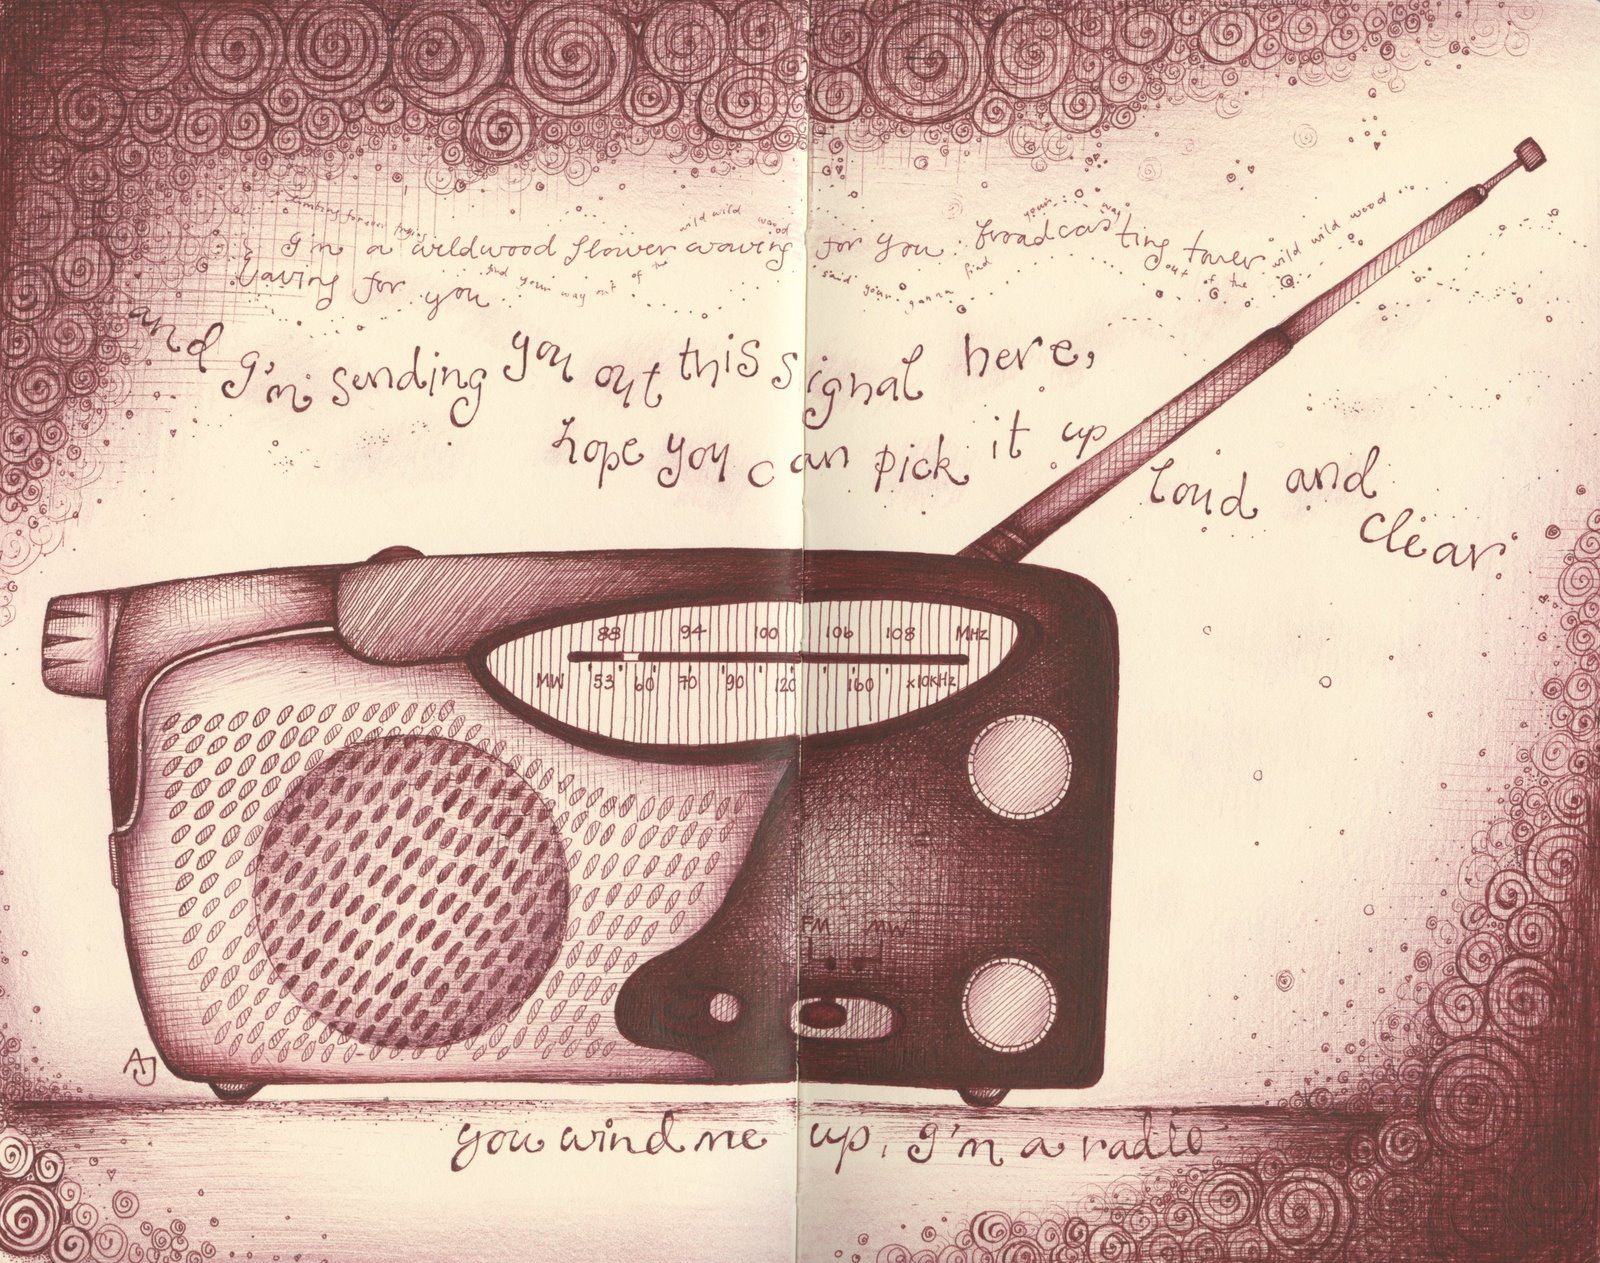 wild wild wood
your way
I'm a wildwood flower waving for you broadcasting tower
waving for you
find your way out of the
said your gonna find
out of the wild wild wood
and I'm sending you out this signal here,
hope you can pick it up
loud and
clear
88 94 100 106 108 MHz
MW 53 60 70 90 120 160 x10kHz
FM MW
AJ
you wind me up, I'm a radio